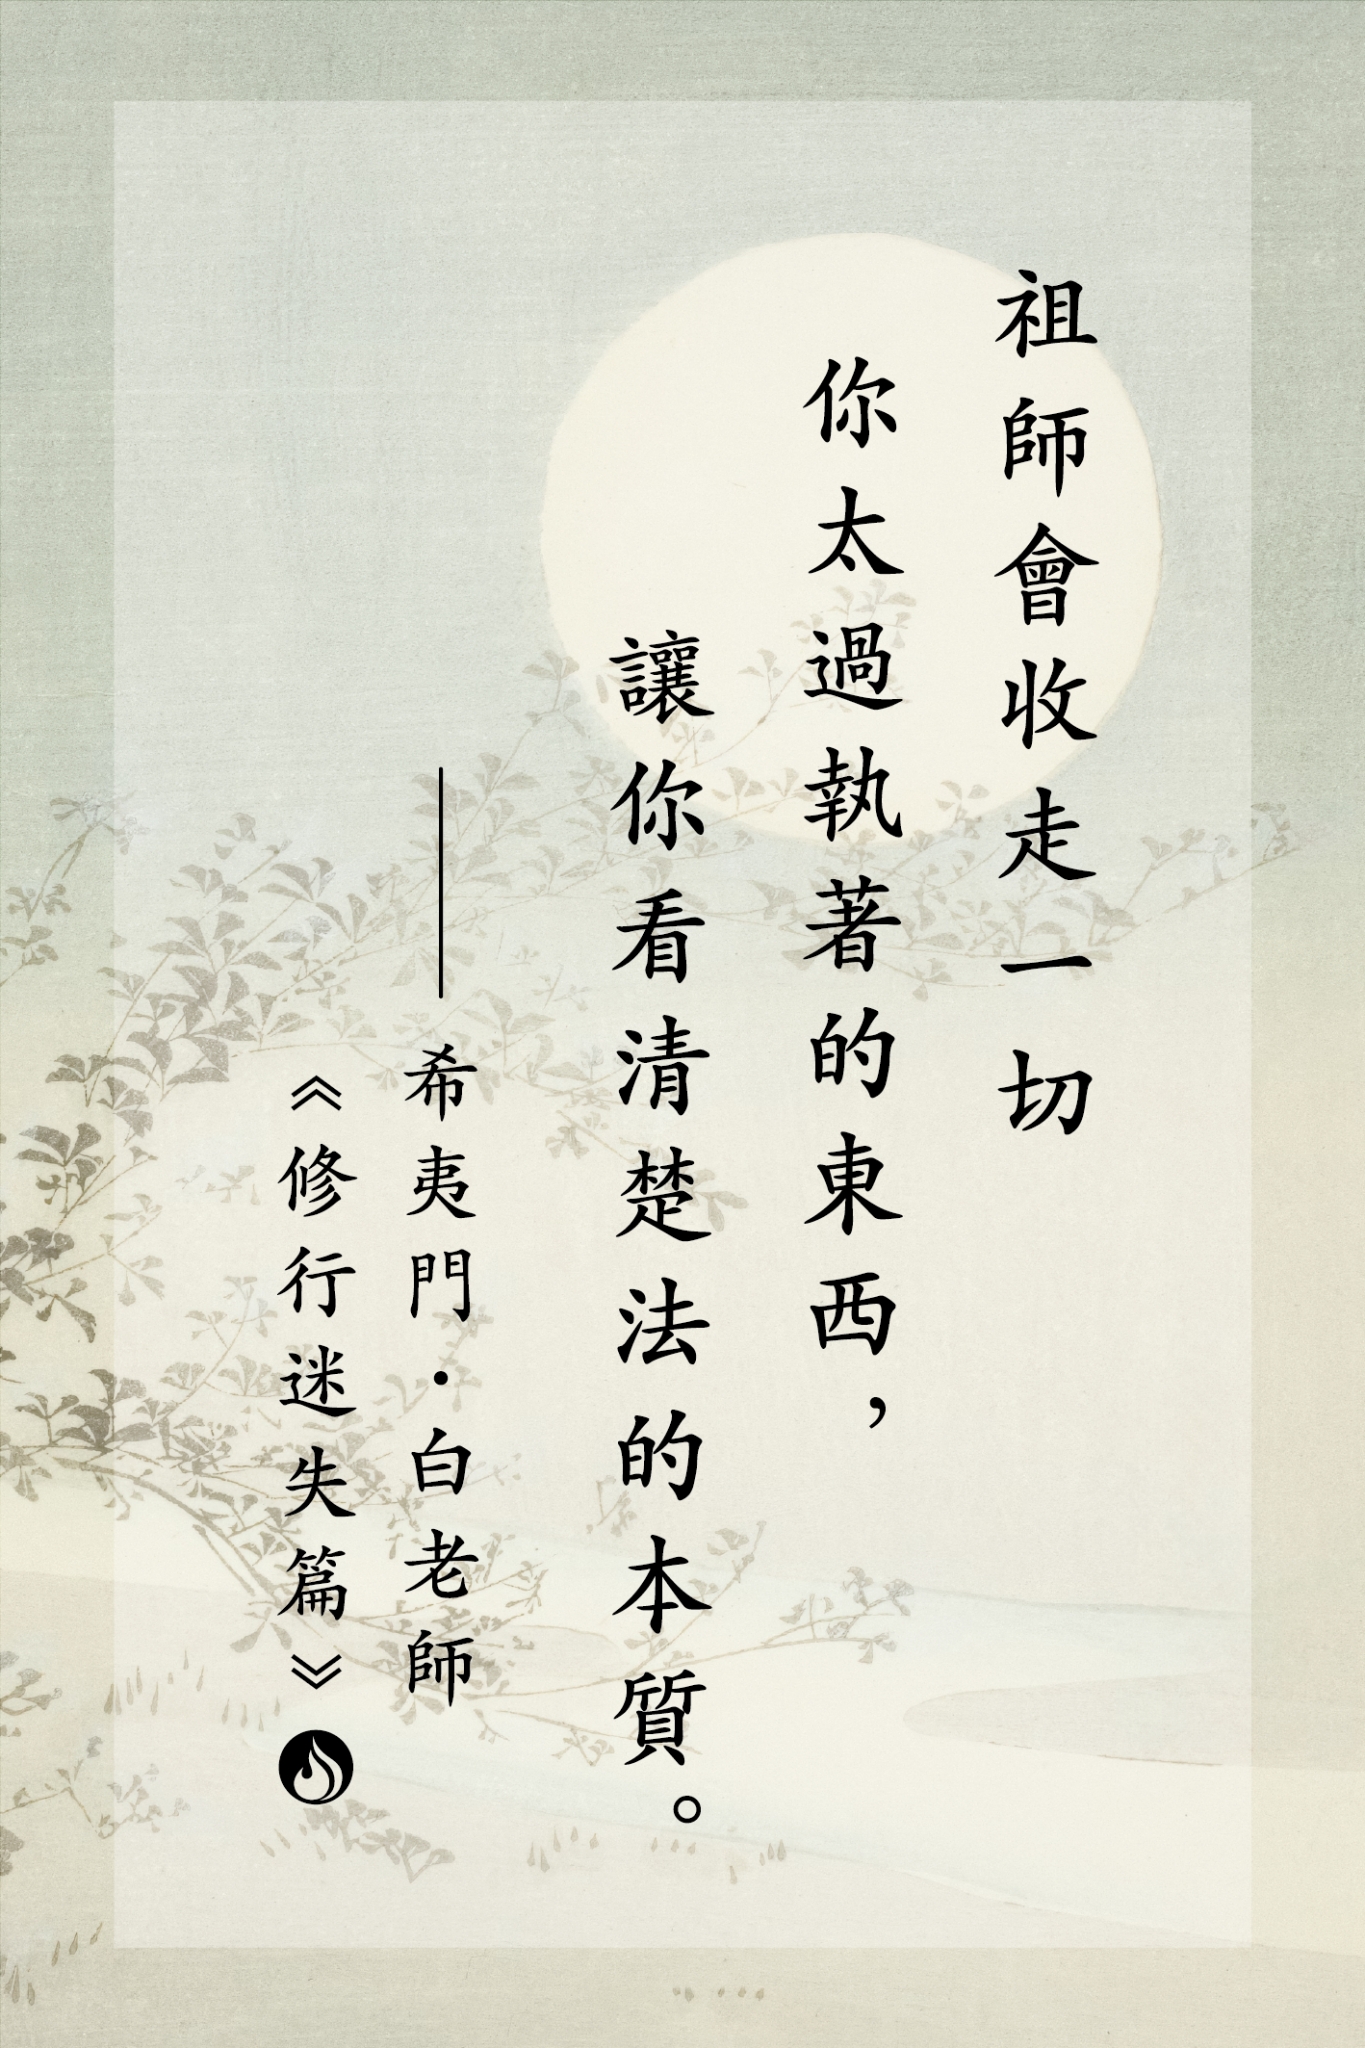 祖師會收走一切
你太過執著的東西，
讓你看清楚法的本質。
——希夷門·白老師
《修行迷失篇》